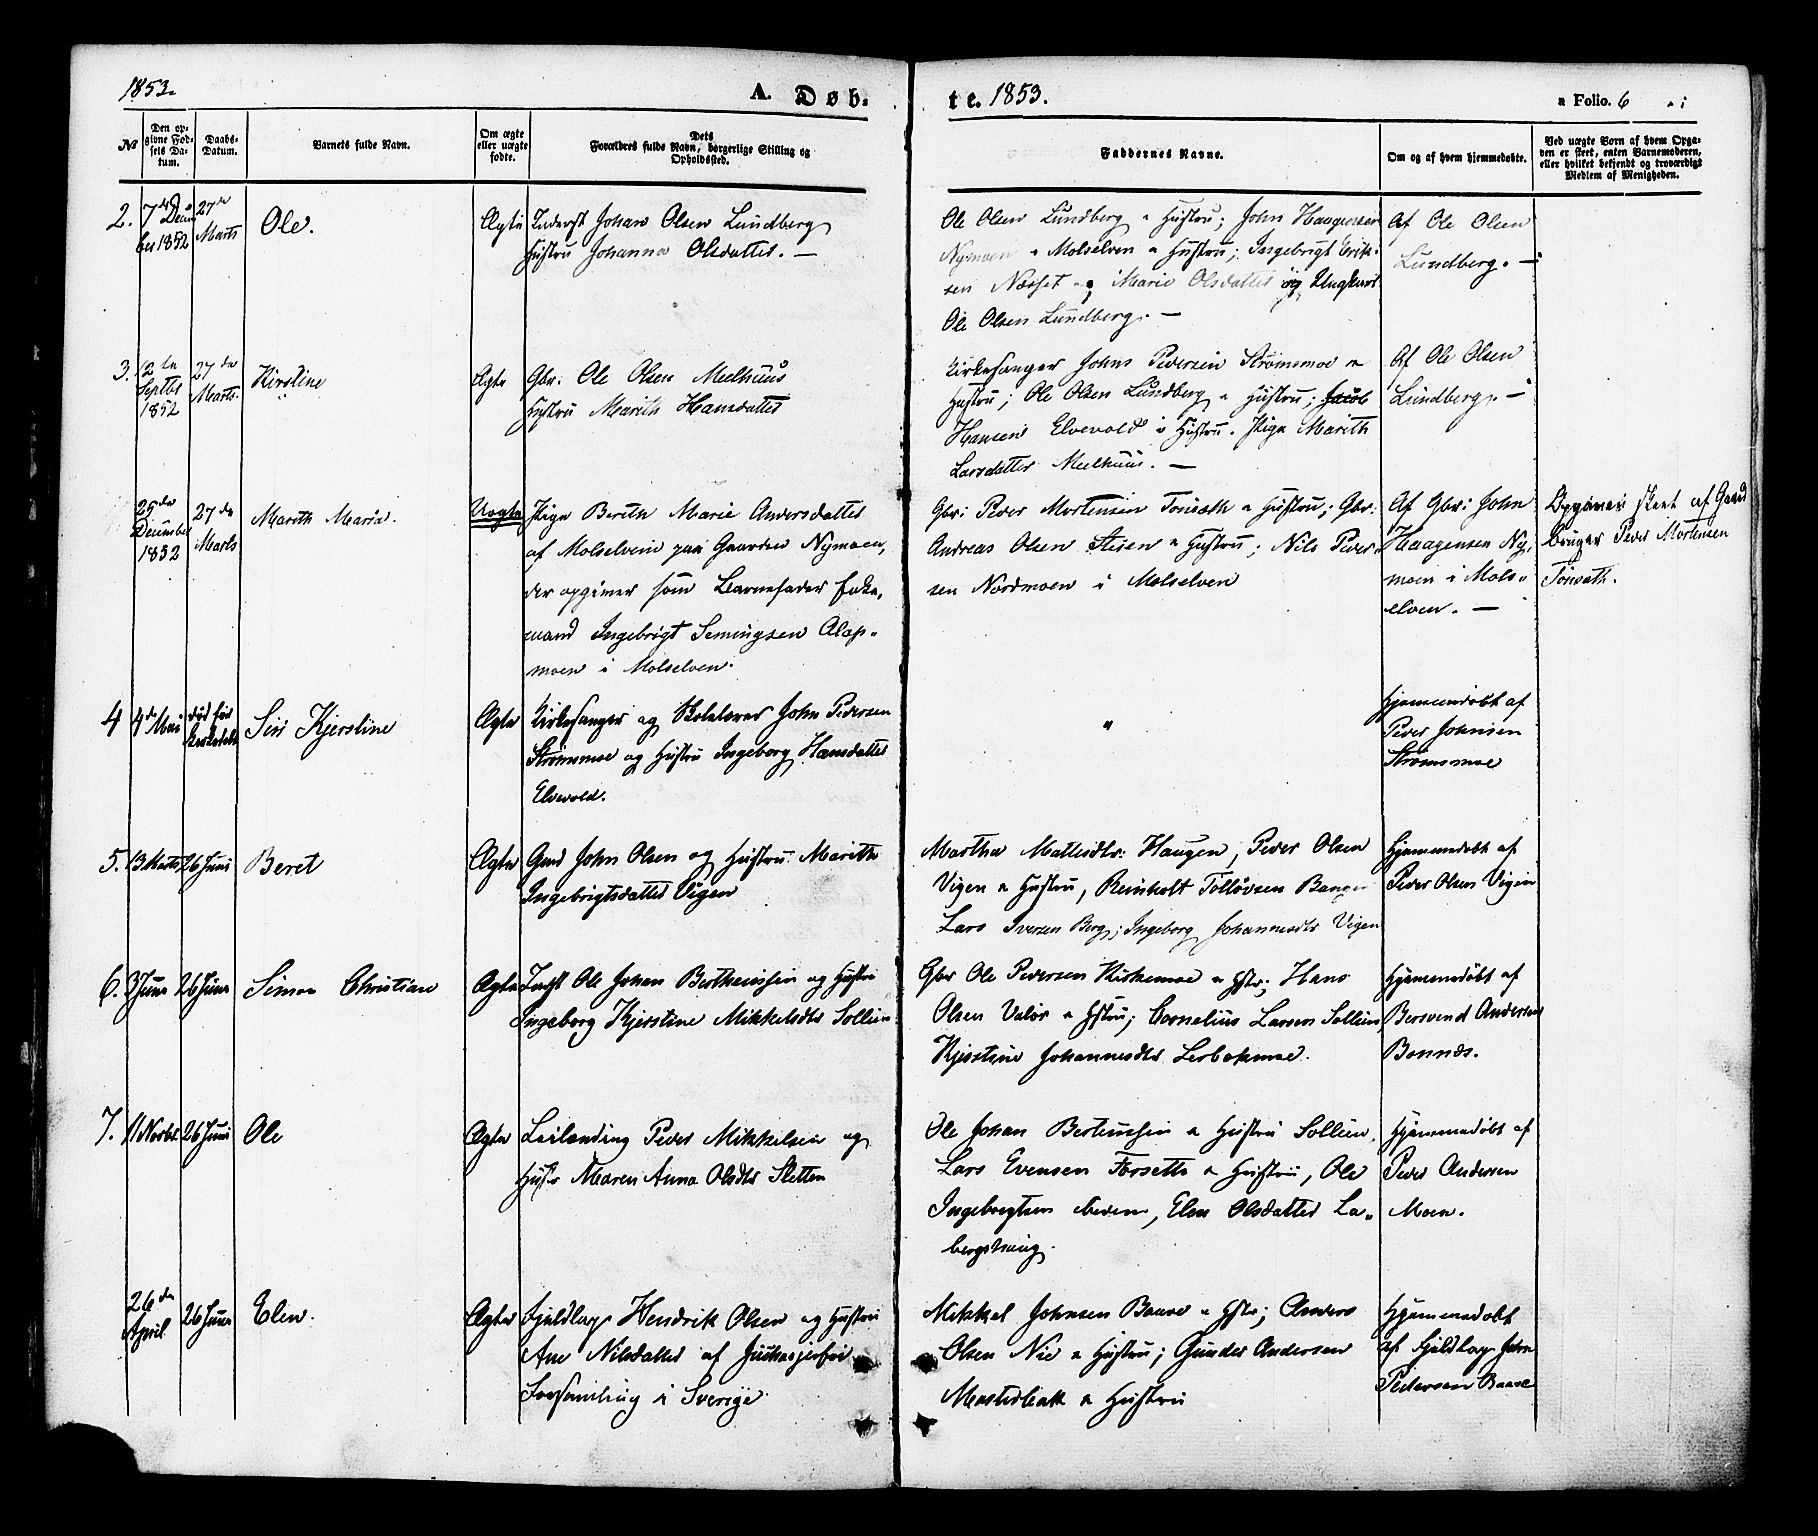 1853.
A. Døb-
te. 1853.
Folio. 6
№
Den op-
givne Fød-
sels Da-
tum.
Daabs-
Datum.
Barnets fulde Navn.
Om ægte
eller uægte
fødte.
Dets
Forældres fulde Navn, borgerlige Stilling og
Opholdssted.
Faddernes Navne.
Om og af hvem hjemmedøbt.
Ved uægte Børn af hvem Opga-
ven er skeet, enten Barnemoderen,
eller hvilket bekjendt og troværdigt
Medlem af Menigheden.
2.
7de Decem
ber 1852
27de
Marts
Ole.
Ægte
Inderst Johan Olsen Lundberg
Hustru Johanna Olsdatter. —
Ole Olsen Lundberg " Hustru; John Haagensen
Nymoen " Molselven " Hustru; Ingebrigt Erik-
sen Næsset og Marie Olsdatter og Ungkarl
Ole Olsen Lundberg. —
Af Ole Olsen
Lundberg. —
3.
12te
Septbr
1852
27de
Marts.
Kirstine
Ægte
Gbr. Ole Olsen Melhuus
Hustru Marith Hansdatter
Kirkesanger Johns Pedersen Strømsmoe "
Hustru; Ole Olsen Lundberg " Hustru; Jacob
Hansen Elvevold " Hustru. Pige Marith
Larsdatter Melhuus. —
Af Ole Olsen
Lundberg. —
25de
December
1852
27de
Marts
Marith Maria.
Uægte
Pige Berith Marie Andersdatter
af Molselven paa Gaarden Nymoen,
der opgiver som Barnefader Enke-
mand Ingebrigt Semingsen Alap-
moen i Molselven.
Gbr: Peder Mortensen " Hustru; Gbr:
Andreas Olsen " Hustru; Nils Peder-
sen Nordmoen i Molselven
Af Gbr: John
Haagensen Ny-
moen i Mols-
elven. —
Opgiver skeet af Gaard
bruger Peder Mortensen
4
4de Mai
død før
Sirs Kjerstine
Ægte
Kirkesanger og Skolelærer John Pedersen
Strømsmoe og Hustru Ingeborg Hansdatter
Elvevold.
"
Hjemmedøbt af
Peder Johnsen
Strømsmoe
5.
13 Marts
26 Juni
Beret
Ægte
Gaard John Olsen og Hustru Marith
Ingebrigtsdatter Vigen
Martha Matisdtr: Haugen, Peder Olsen
Vigen " Hustru, Reinholt Tolløvsen
Lars Iversen Berg; Ingeborg Johannesdtr Vigen
Hjemmedøbt af
Peder Olsen Vigen
6.
3 Juni
26 Juni
Simon Christian
Ægte
Indst Ole Johan Bertheussen og Hustru
Ingeborg Kjerstine Mikkelsdtr Sollien
Gbr Ole Pedersen Kirkemoe " Hstr; Hans
Olsen Valør " Hstru; Cornelius Larsen Sollien
Kjerstine Johannesdtr
Hjemmedøbt af
Bersvend Andersen
Bonnes.
7.
11 Novbr
26 Juni
Ole
Ægte
Leilending Peder Mikkelsen og
Hustr Maren Anna Olsdtr Sletten
Ole Johan Berteussen " Hustru Sollien,
Lars Evensen Fosseth " Hustru, Ole
Ingebrigtsen Neden, Elen Olsdatter La-
bergshaug.
Hjemmedøbt af
Peder Andersen
Moen.
26de
April
26 Juni
Elen.
Ægte
Fjeldlap Hendrik Olsen og Hustru
Ane Nilsdatter af
Forsamling i Sverige.
Mikkel Johnsen Baave " Hstr; Anders
Olsen Nie " Hustru; Gunder Andersen
" Hustru
Hjemmedøbt
af Fjeldlap John
Pedersen Baave